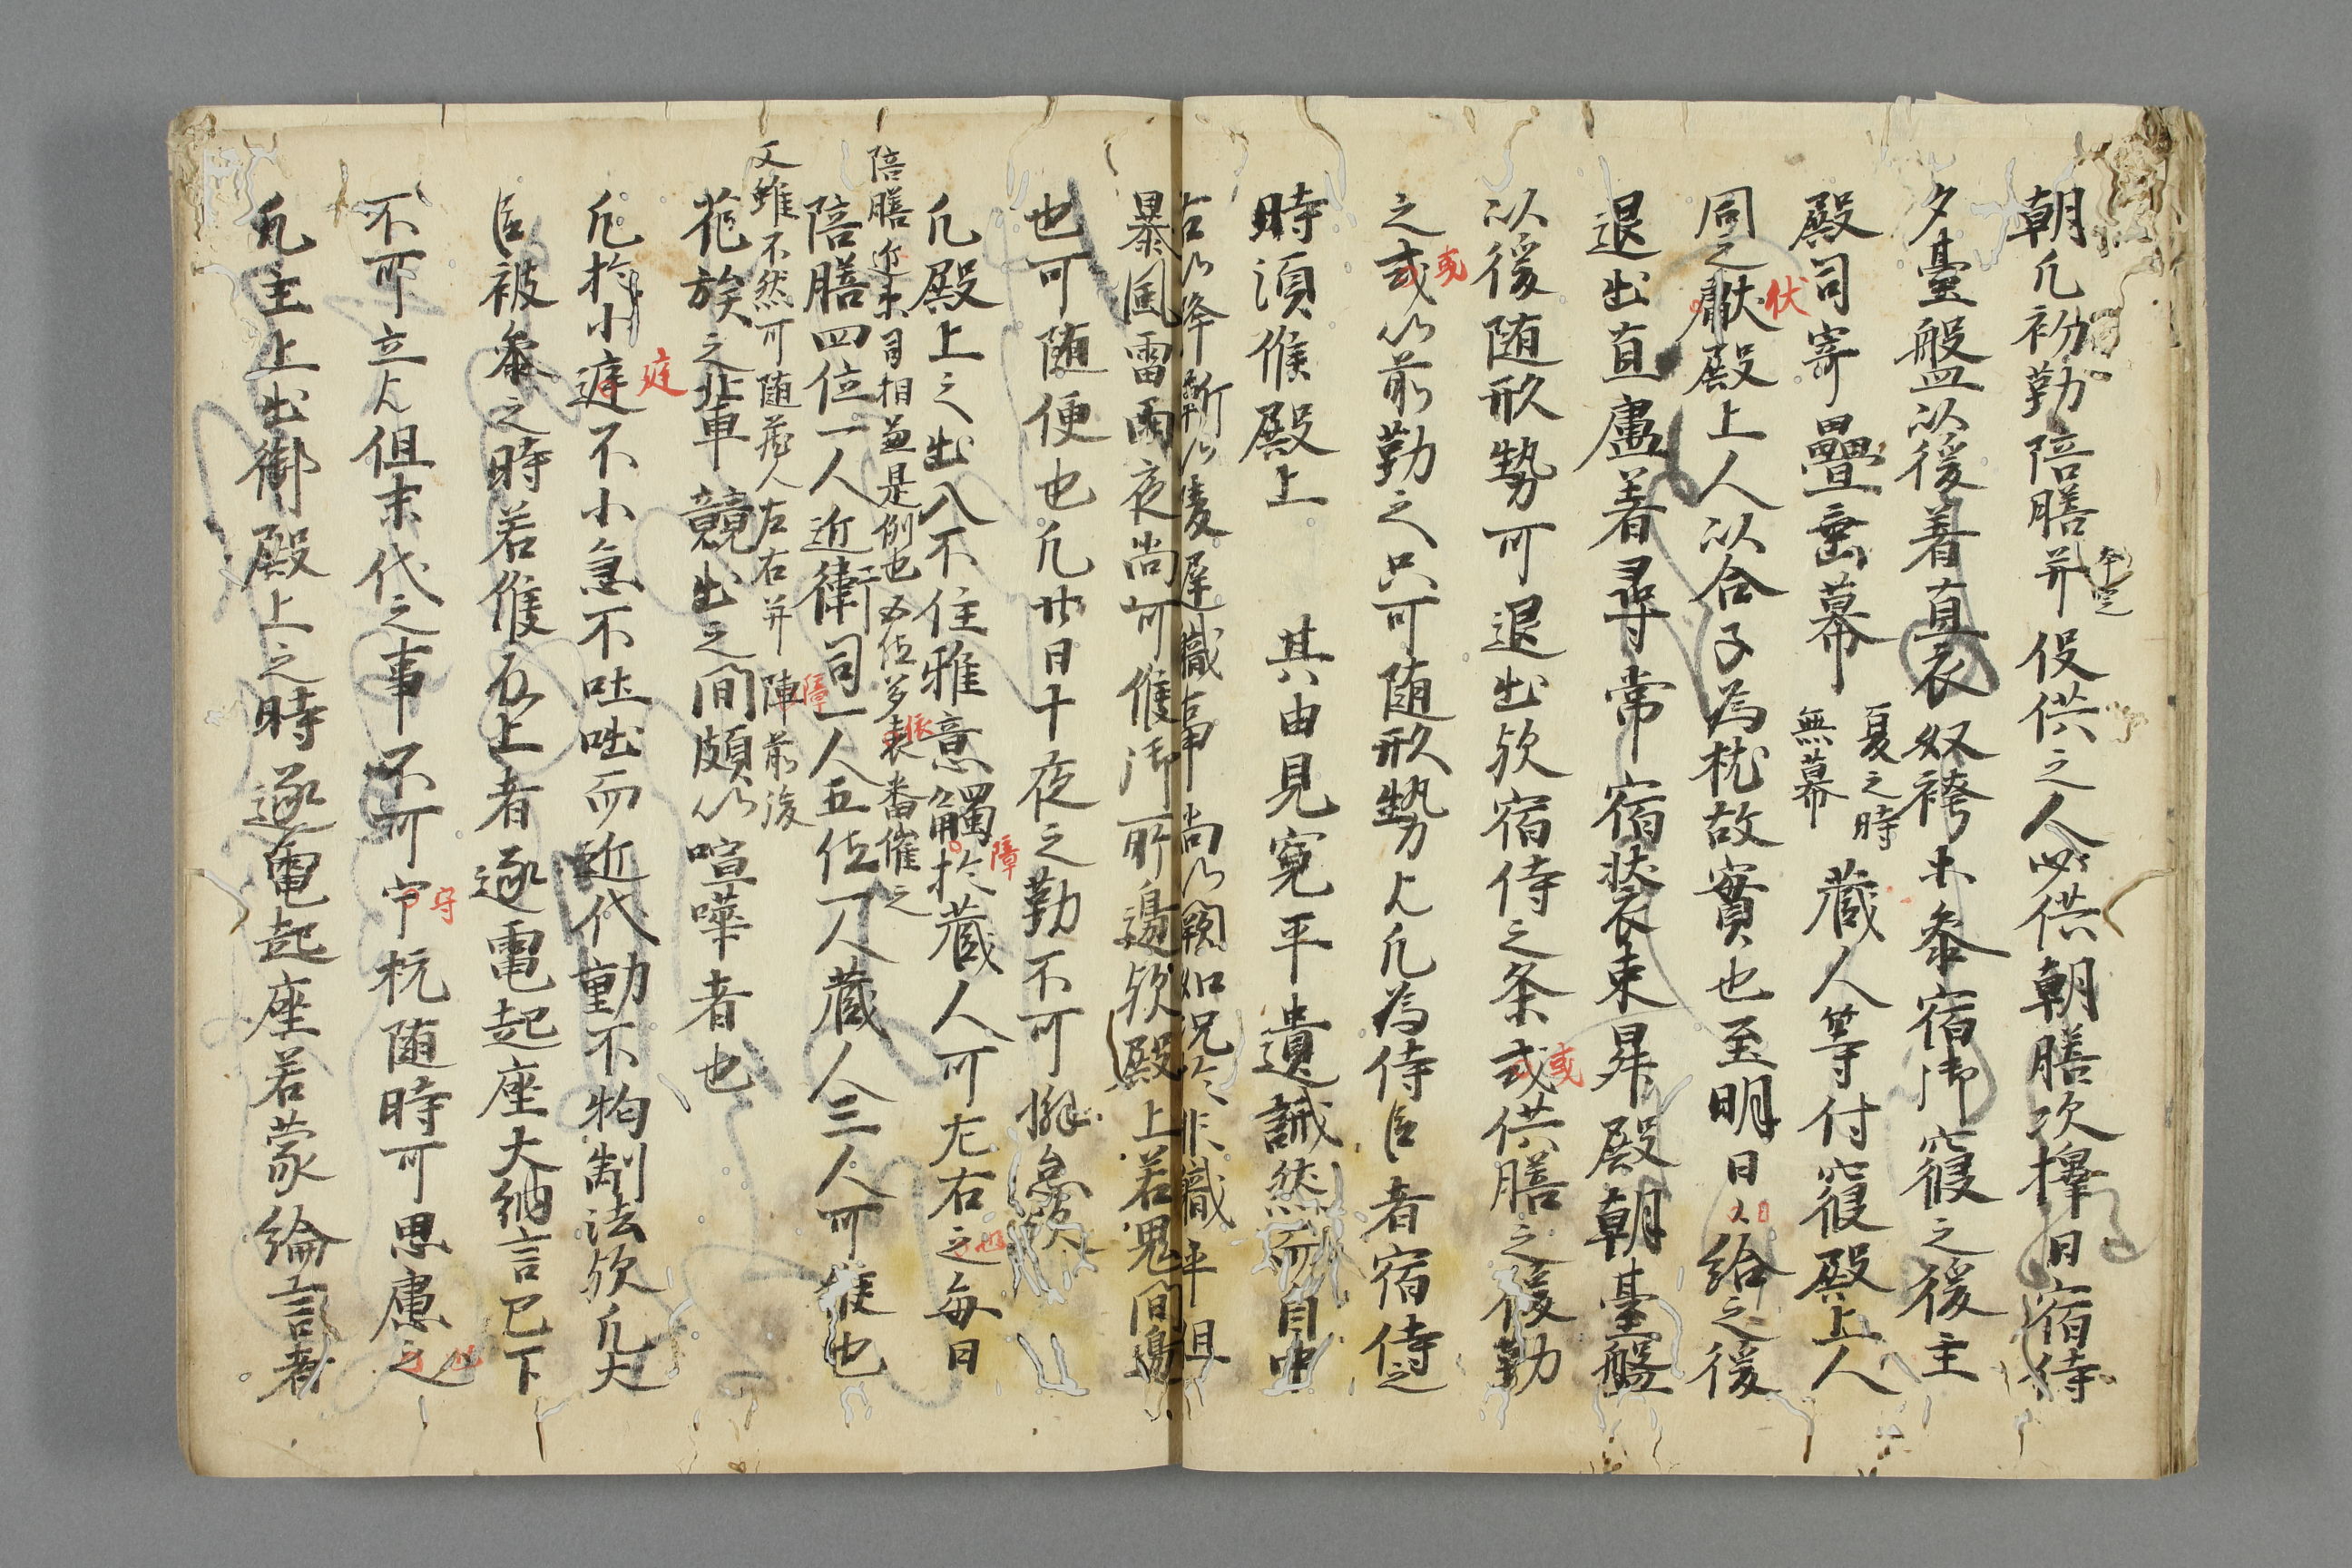 朝凡初勤陪膳并役供之人必供朝膳次擇日宿侍
夕臺盤以後着直衣奴袴木参宿御寝之後主
殿司寄疊垂幕
夏之時
無幕
蔵人等付寝殿上人
同之猒殿上人以合子為枕故實也至明日給之後
伏
退出直盧着尋常宿装束昇殿朝臺盤
以後随形勢可退出欤宿侍之条或供膳之後勤
或
之或以前勤之只可随形勢凡為侍臣者宿侍之
或
時須候殿上 其由見寛平遺誡然而自中
古以降漸以陵遅職事尚以闕如況於非職平但
暴風雷雨夜尚可候御所邊欤殿上若鬼間邊
也可随便也凡廿日十夜之勤不可懈怠欤
凡殿上之出入不住雅意觸於蔵人可左右之毎日
障
陪膳近来司相兼是例也五位多表番催之
陪膳四位一人近衛司一人五位一人蔵人三人可候也
又雖不然可随蔵人左右并陣前後
障
花族之輩車競出之間頗以喧嘩者也
凡於小遅不小急不吐咄而近代動不拘制法欤凡大
庭
臣被参之時若候座上者逐電起座大納言已下
不可立但末代之事不可守杭随時可思慮之
守
凡主上出御殿上之時逐電起座若蒙綸言者